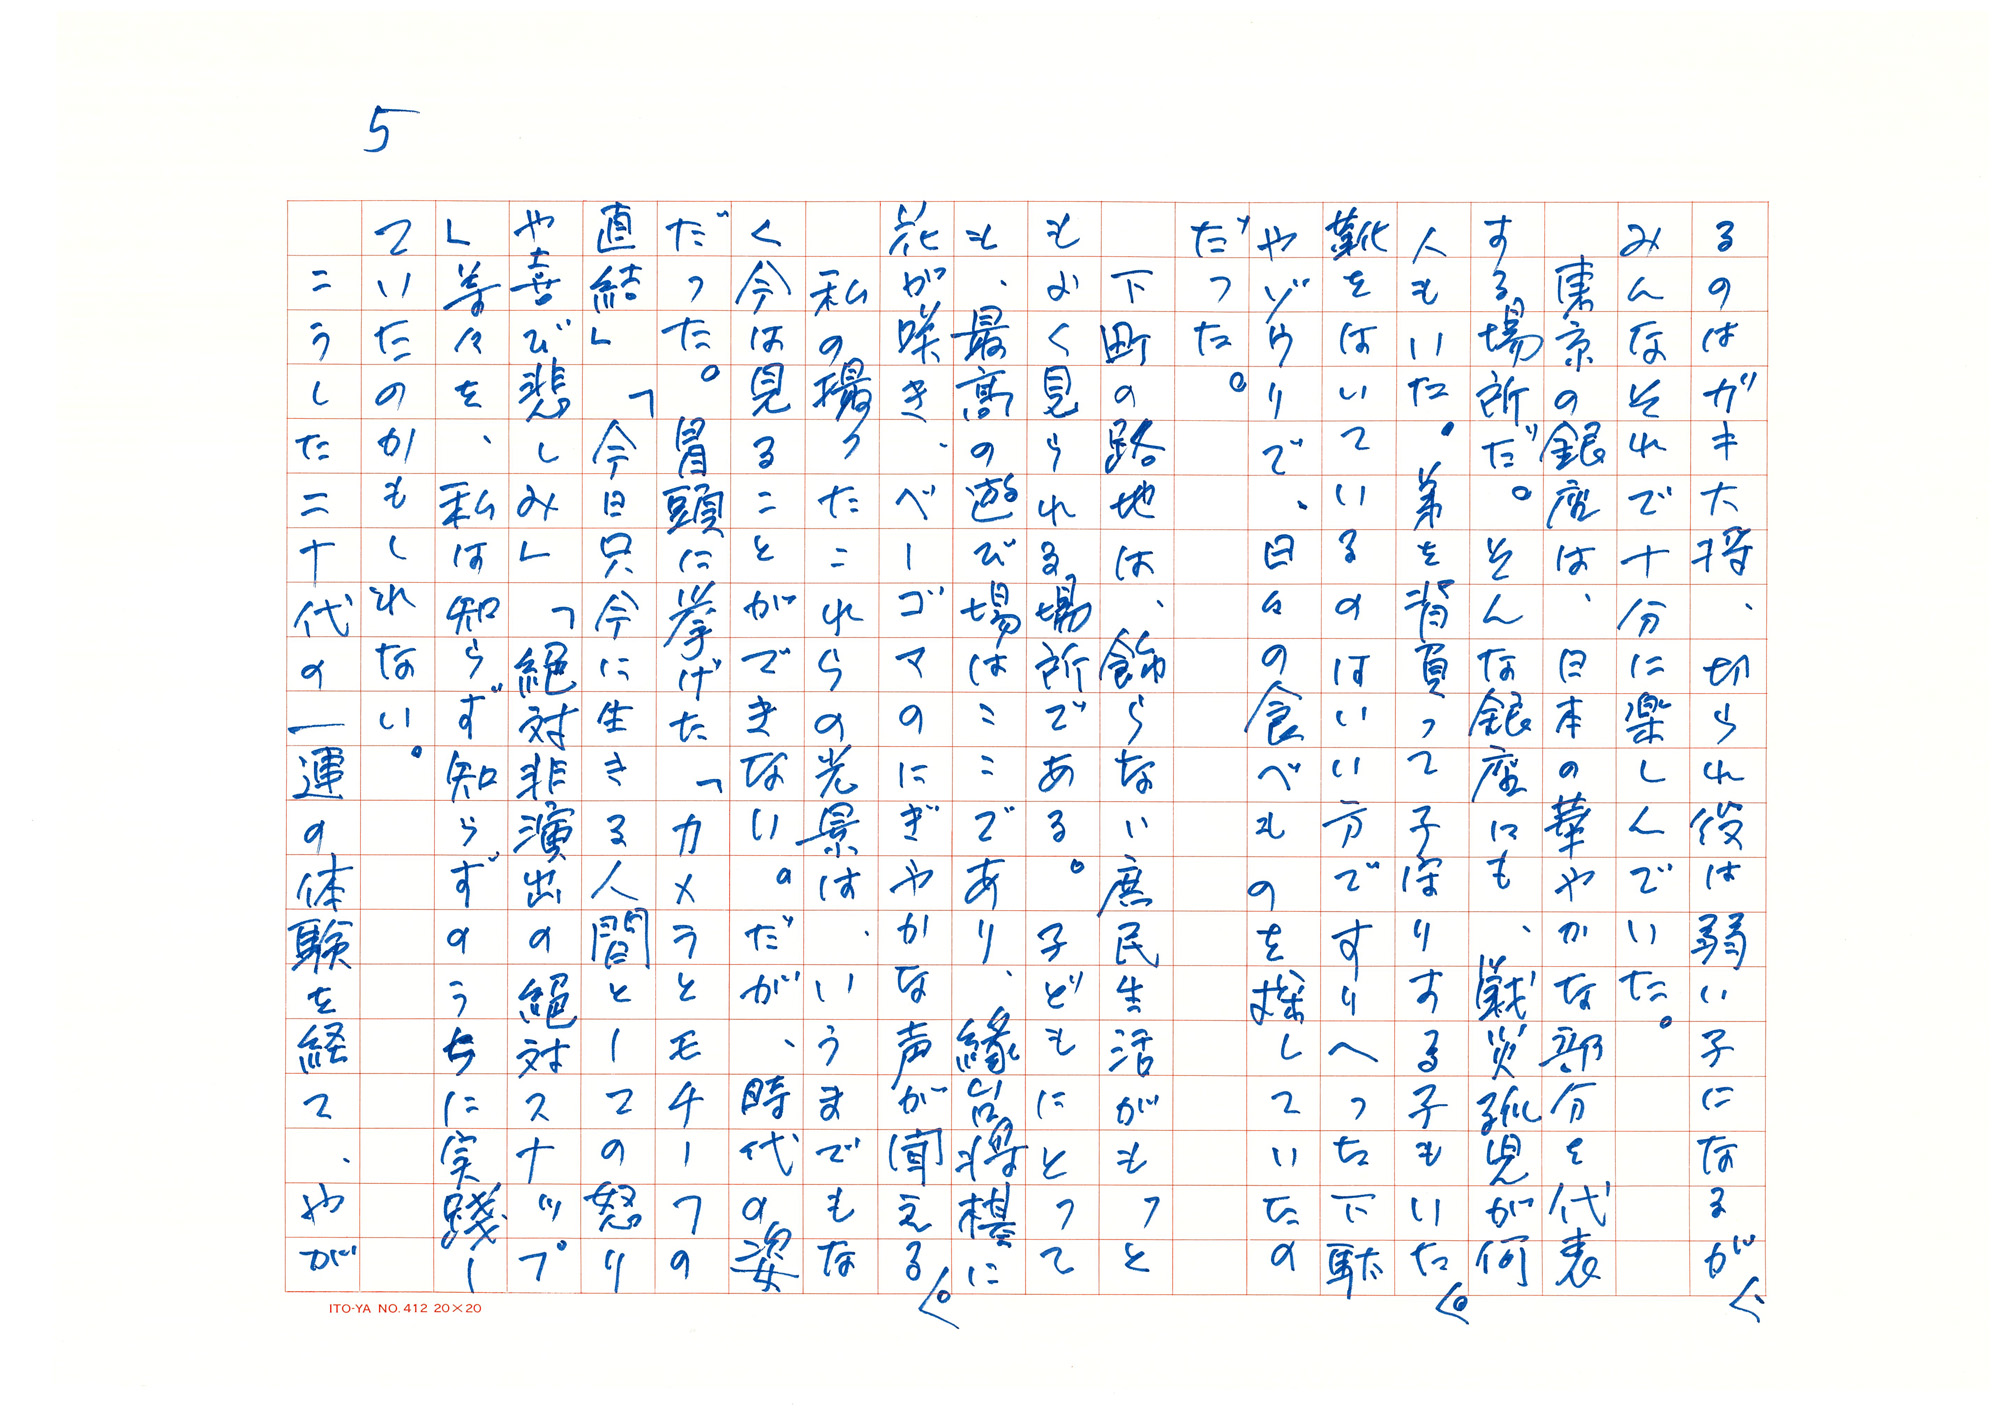 5
るのはガキ大将、切られ役は弱い子になるが、
みんなそれで十分に楽しんでいた。
東京の銀座は、日本の華やかな部分を代表
する場所だ。そんな銀座にも、戦災孤児が何
人もいた。弟を背負って子守りする子もいた。
靴をはいているのはいい方ですりへった下駄
やゾウリで、日々の食べものを探していたの
だった。
下町の路地は、飾らない庶民生活がもっと
もよく見られる場所である。子どもにとって
も、最高の遊び場はここであり、縁台将棋に
花が咲き、ベーゴマのにぎやかな声が聞える。
私の撮ったこれらの光景は、いうまでもな
く今は見ることができない。だが、時代の姿
だった。冒頭に挙げた「カメラとモチーフの
直結」「今日只今に生きる人間としての怒り
や喜び悲しみ」「絶対非演出の絶対スナップ
」等々を、私は知らず知らずのうちに実践し
ていたのかもしれない。
こうした二十代の一連の体験を経て、やが
ITO-YA NO.412 20×20